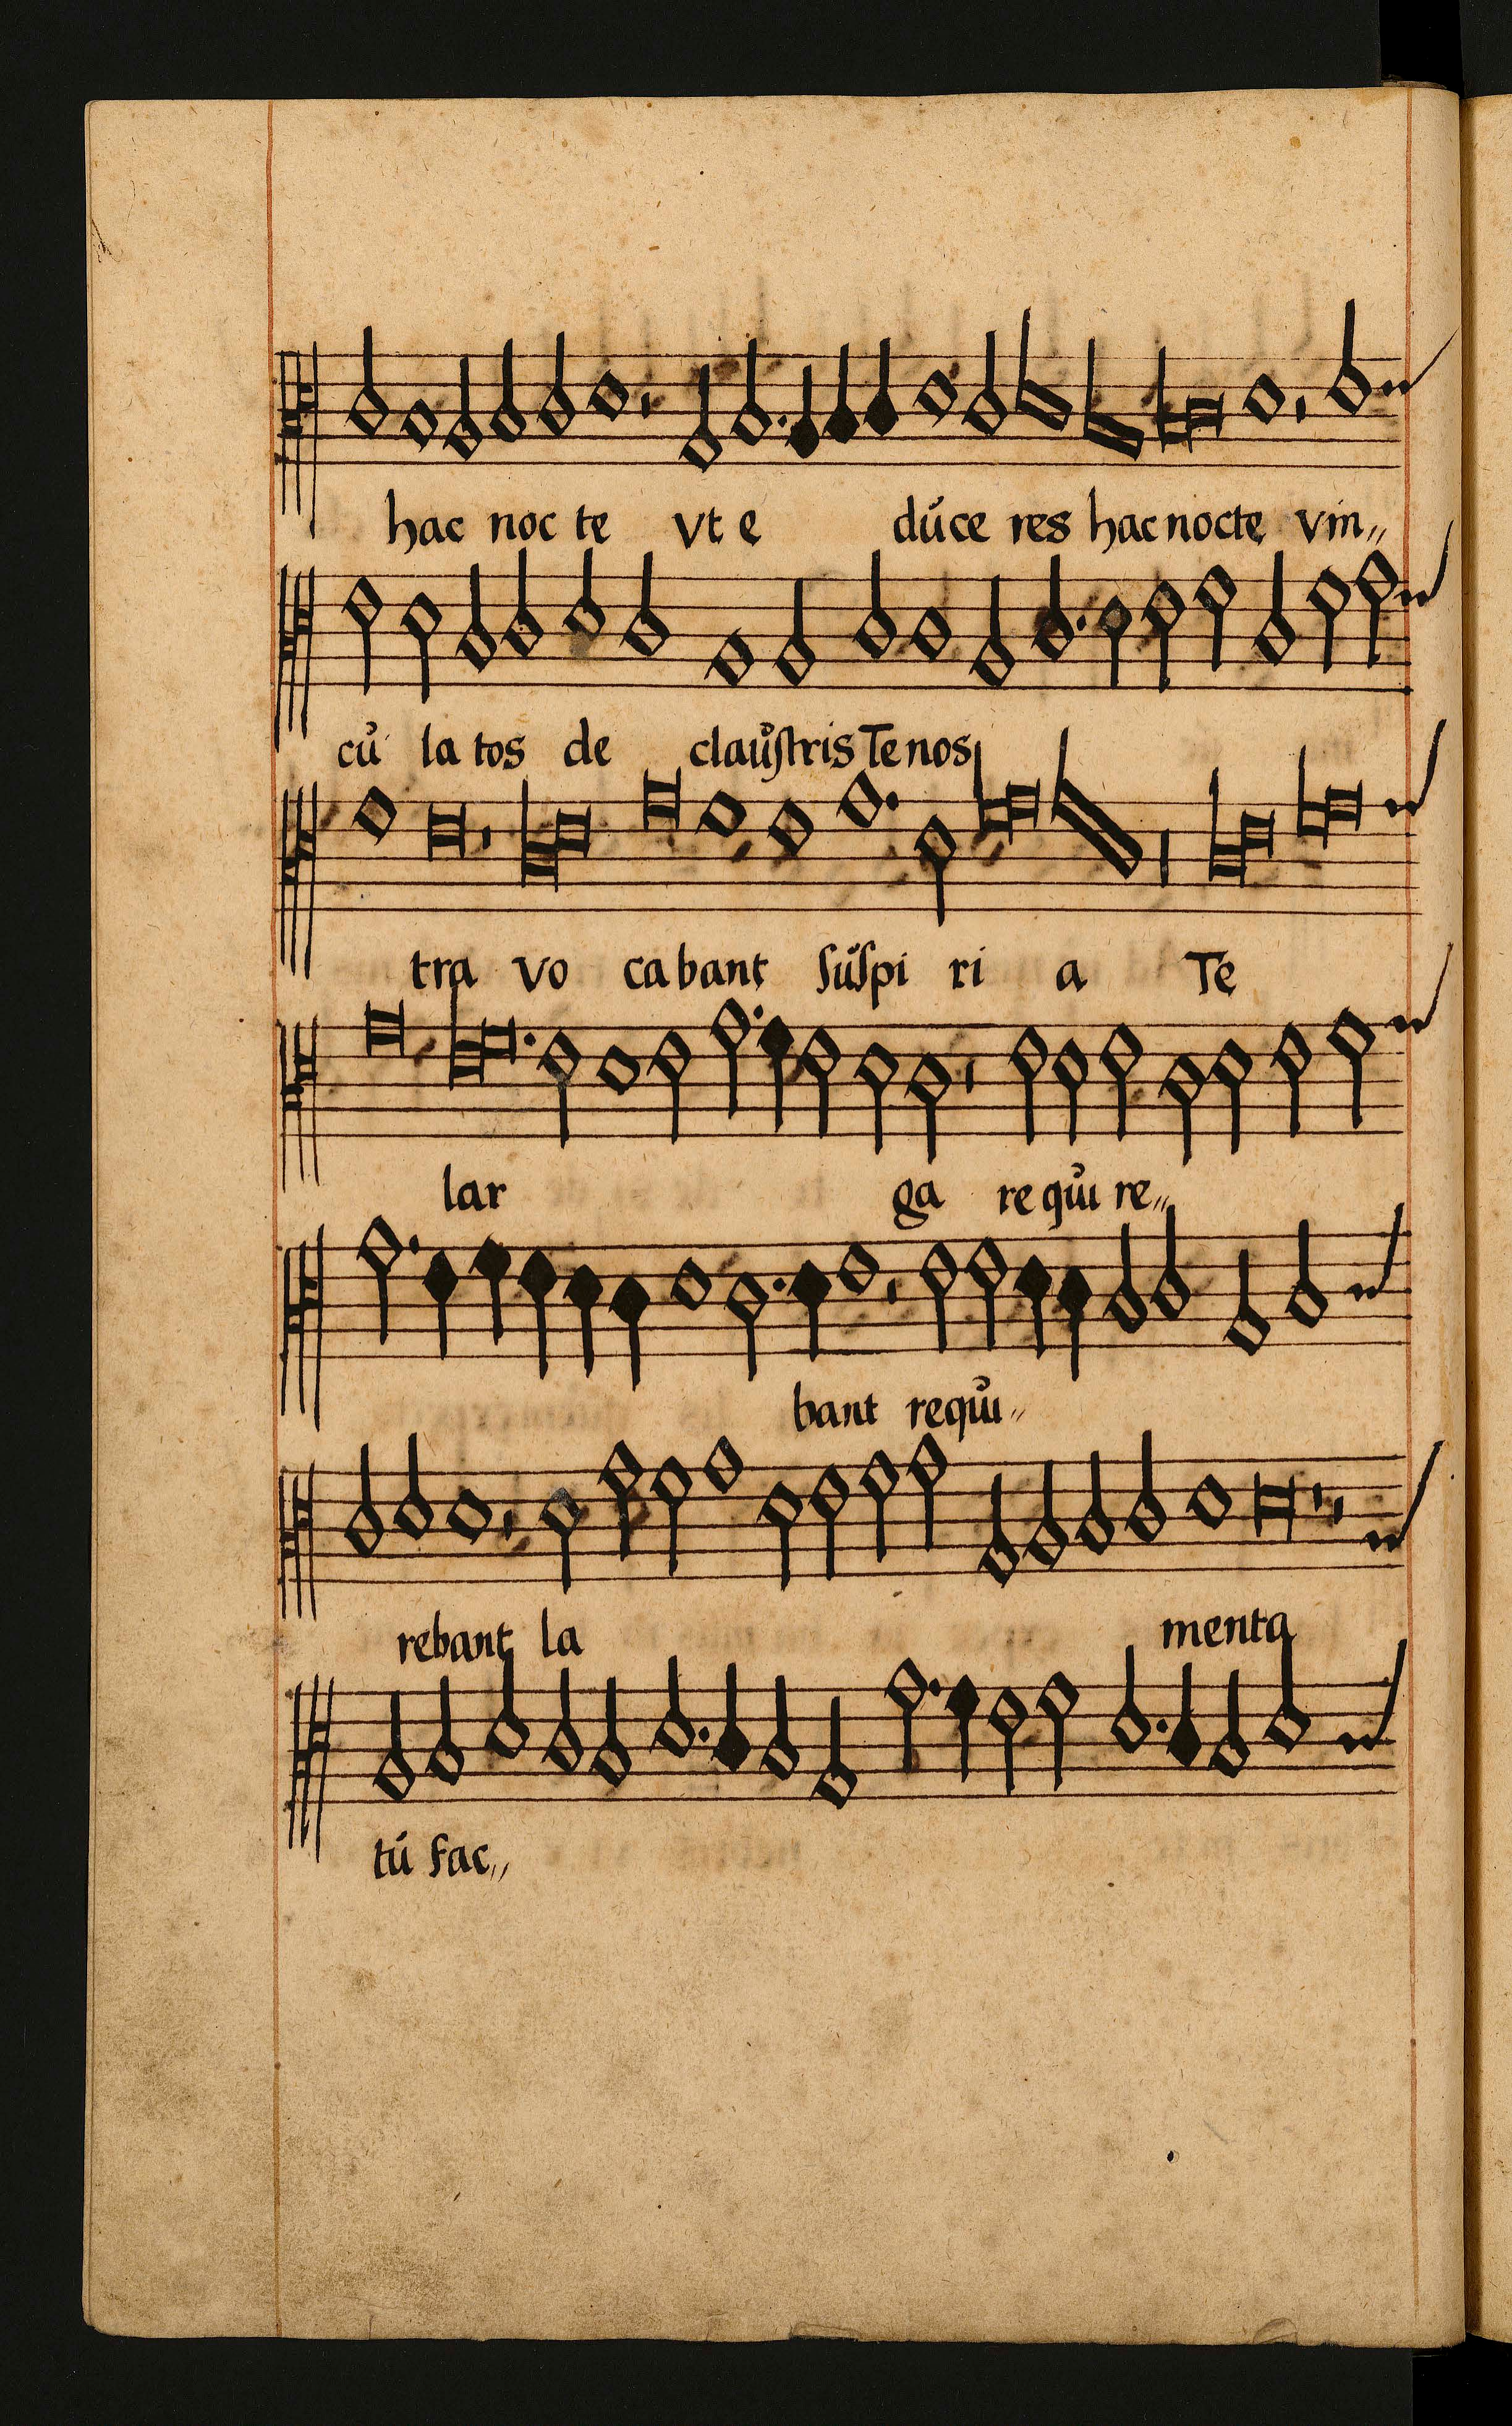 hac noc te vt e dúce res hac nocte vin„
cu̍ la tos de clau̍ſtris Te nos
tra vo ca bant ſu̍ſpi ri a Te
lar ga re qu̍i re„
bant requ̍i„
rebant la menta
tú fac„